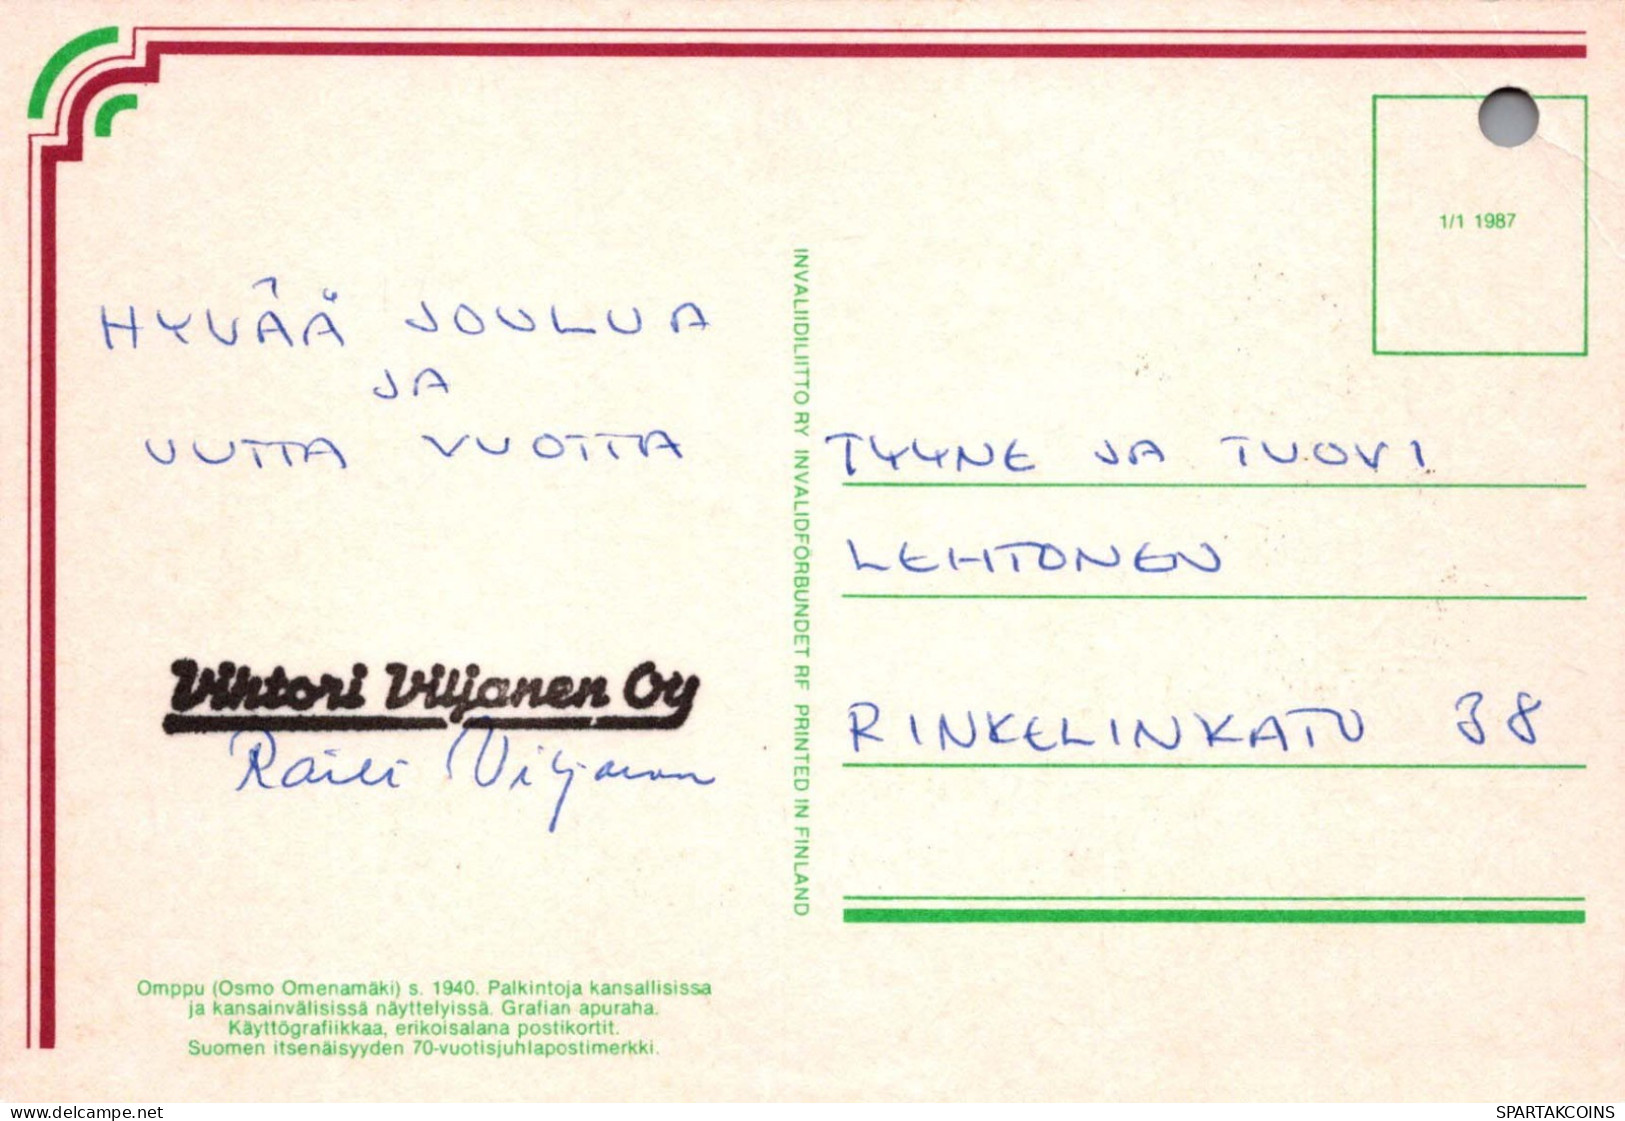 1/1 1987
HYVÄÄ JOULUA
JA
UUTTA VUOTTA
Vihtori Viljanen Oy
Raili Viljanen
Omppu (Osmo Omenamäki) s. 1940. Palkintoja kansallisissa
ja kansainvälisissä näyttelyissä. Grafian apuraha.
Käyttögrafiikkaa, erikoisalana postikortit.
Suomen itsenäisyyden 70-vuotisjuhlapostimerkki.
INVALIIDILIITTO RY INVALIDFÖRBUNDET RF PRINTED IN FINLAND
TYYNE JA TUOVI
LEHTONEN
RINKELINKATU 38
delcampe.net
SPARTAKCOINS